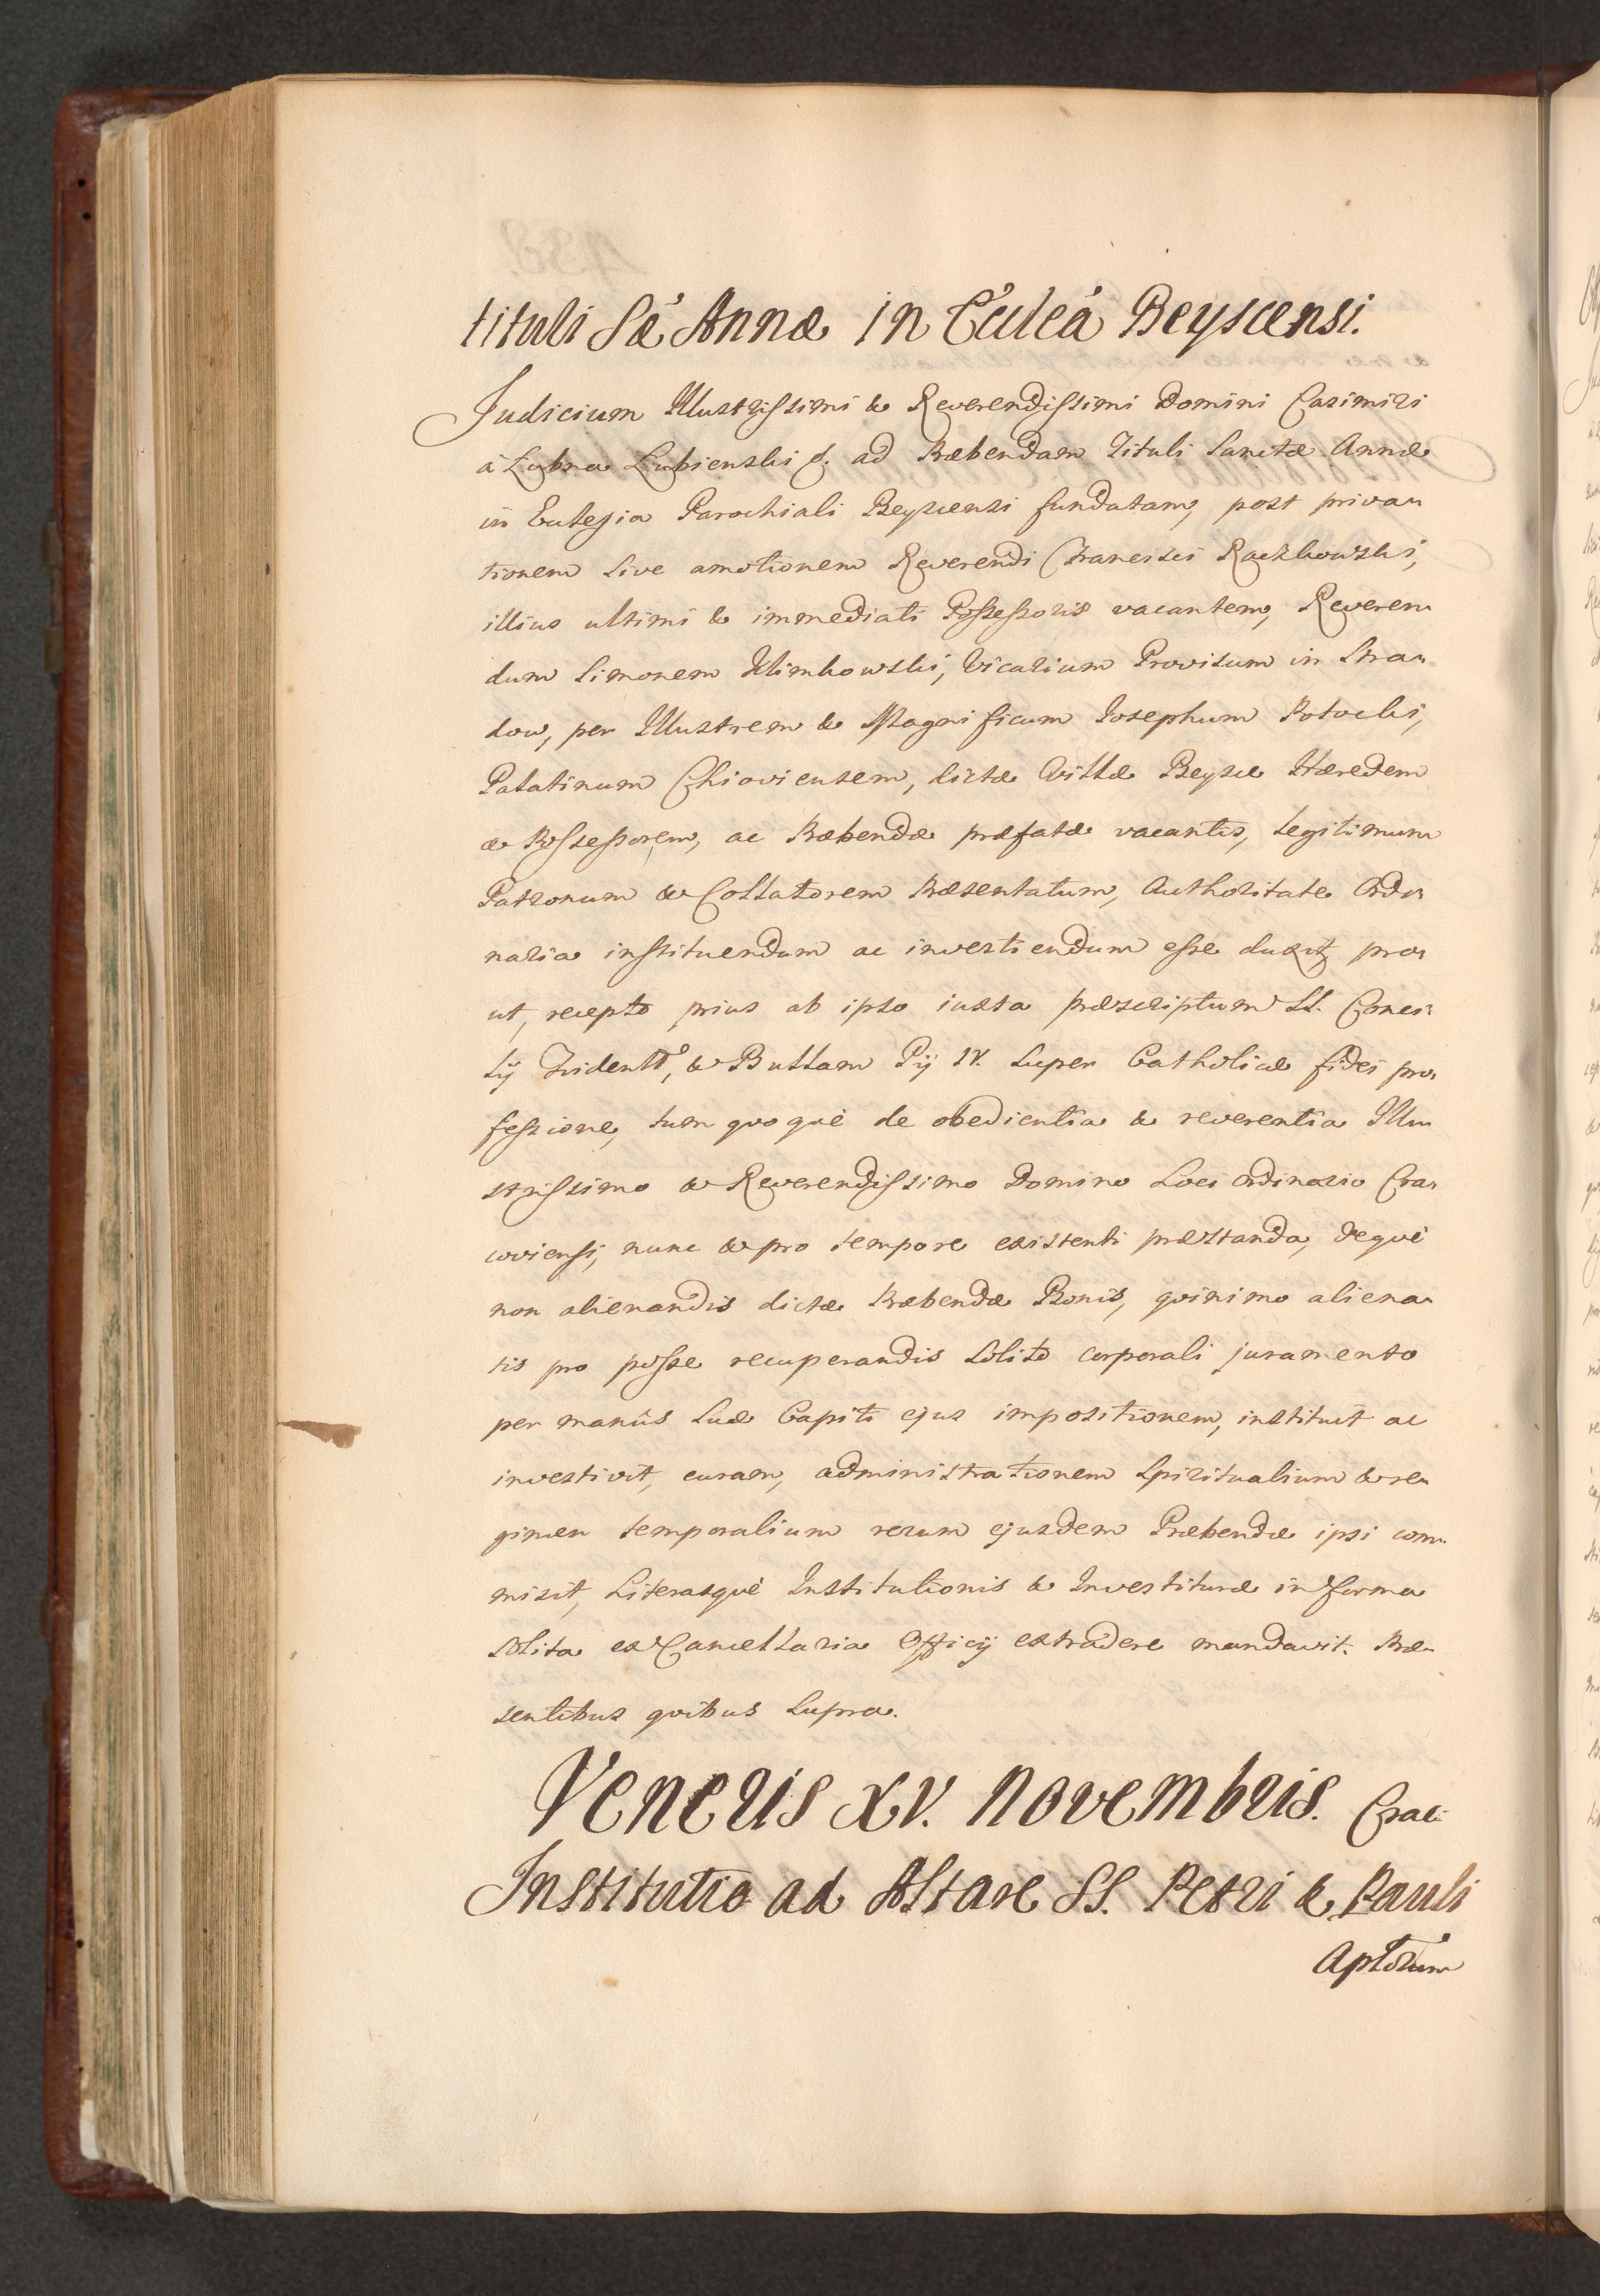 tituli Sæ Annæ in Ecclea Beyscensi.
Judicium Illustrissimi & Reverendissimi Domini Casimiri
à Lubna Lubienski &. ad Præbendam Tituli Sanctæ Annæ
in Ecclesia Parochiali Beyscensi fundatam, post priva-
tionem sive amotionem Reverendi Francisci Raczkowski,
illius ultimi & immediati Possessoris vacantem, Reveren-
dum Simonem Klimkowski, Vicarium Provisum in Stra-
dow, per Illustrem & Magnificum Josephum Potocki,
Palatinum Chioviensem, dictæ Villæ Beysce Hæredem
& Possessorem, ac Præbendæ præfatæ vacantis, legitimum
Patronum & Collatorem Præsentatum, Authoritate Ordi-
naria instituendum ac investiendum esse duxit, pro-
ut, recepto prius ab ipso iuxta præscriptum SS. Conci-
lij Tridentt, & Bullam Pij IV. super Catholicæ fidei pro-
fessione, tum quoquè de obedientia & reverentia Illu-
strissimo & Reverendissimo Domino Loci Ordinario Cra-
coviensi, nunc & pro tempore existenti præstanda, dequè
non alienandis dictæ Præbendæ Bonis, quinimo aliena-
tis pro posse recuperandis solito corporali juramento
per manûs suæ Capiti ejus impositionem, instituit ac
investivit, curam, administrationem Spiritualium & re-
gimen temporalium rerum ejusdem Præbendæ ipsi com-
misit, Literasquè Institutionis & Investituræ in forma
solita ex Cancellaria Officij extradere mandavit. Præ-
sentibus quibus supra.
Veneris XV. Novembris. Crac:
Institutio ad Altare SS. Petri & Pauli
Aptorum